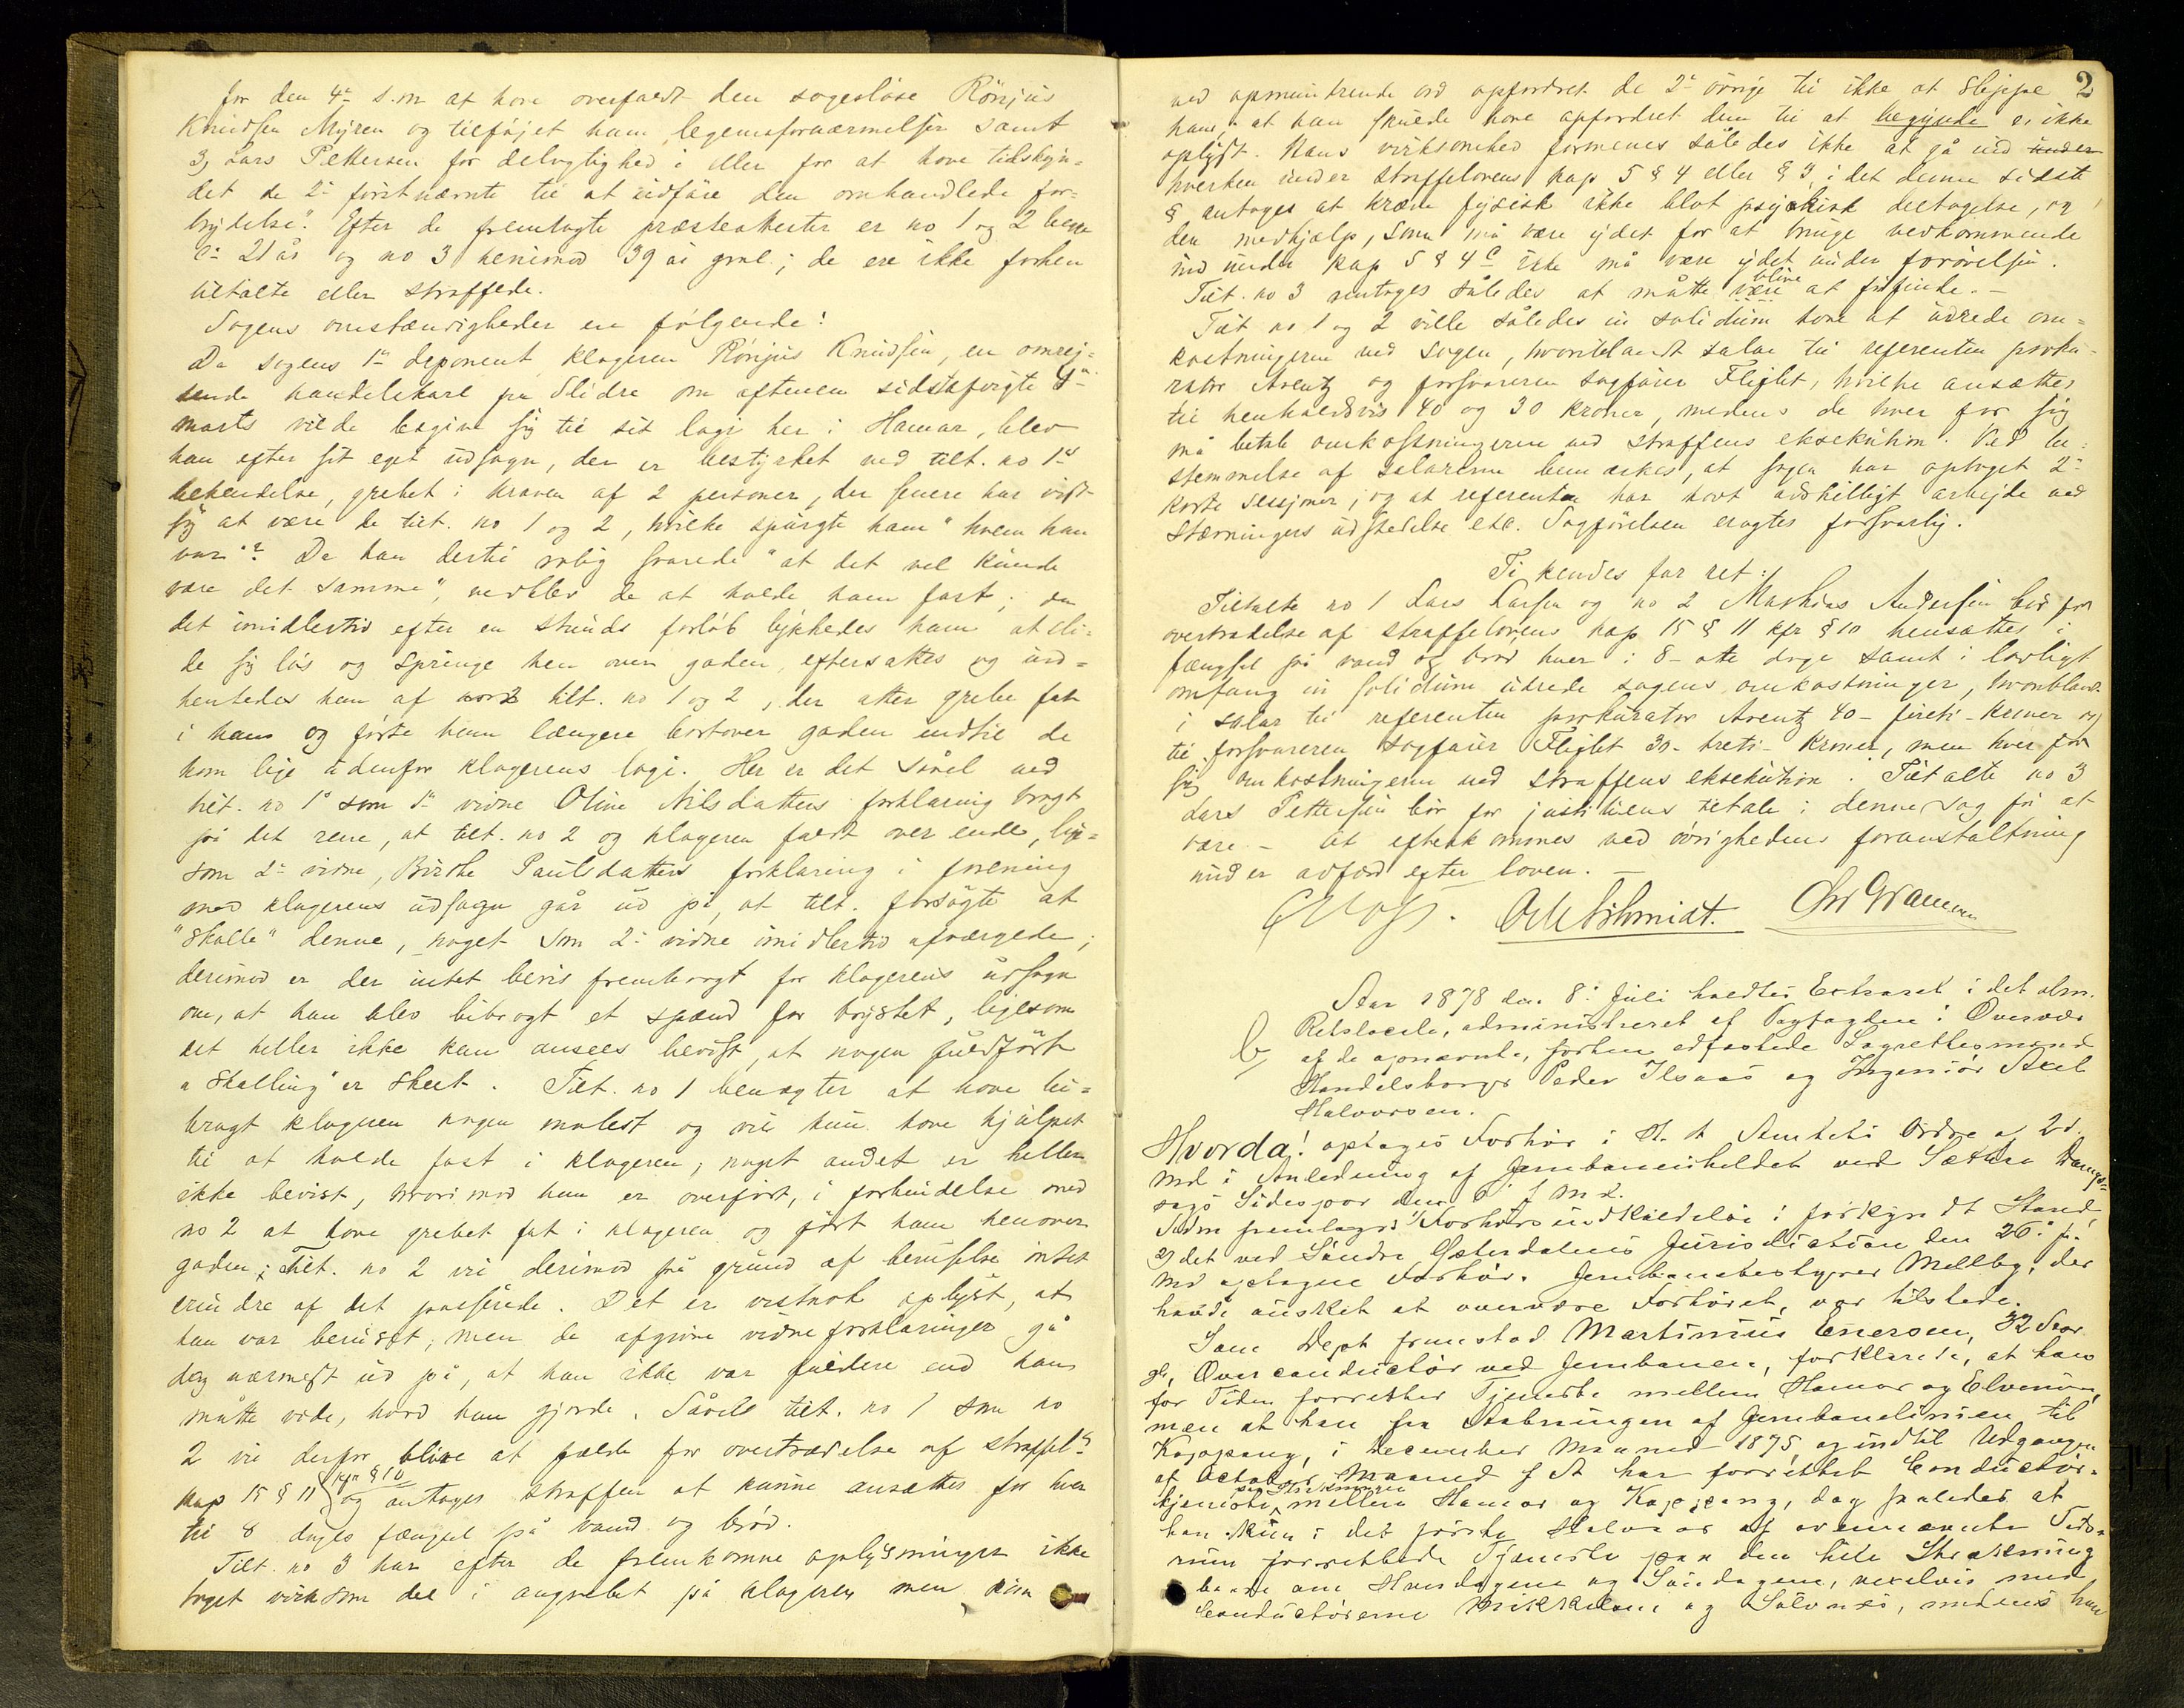 for den 4de s. m. at have overfaldt den sagesløse Rönjus
Knudsen Myren og tilføjet ham legemsfornærmelser samt
3, Lars Pettersen for delagtighed i eller for at have tilskyn=
det de 2de førstnævnte til at udføre den omhandlede for=
brydelse". Efter de fremlagte præsteattester er no 1 og 2 begge
21 år og no 3 henimod 39 år gml.; de ere ikke forhen
tiltalte eller straffede.
Sagens omstændigheder ere følgende:
Da sagens 1ste deponent, klageren Rönjus Knudsen, en omrej=
sende handelskarl fra Slidre om aftenen sidstafvigte 4de
marts vilde begive sig til sit logi her i Hamar, blev
han efter sit eget udsagn, der er bestyrket ved tilt. no 1s
bekendelse, grebet i kraven af 2 personer, der senere har vist
sig at være de tilt. no 1 og 2, hvilke spurgte ham "hvem han
var"? Da han dertil rolig svarede "at det vel kunde
være det samme", vedblev de at holde ham fast; da
det imidlertid efter en stunds forløb lykkedes ham at sli=
de sig løs og springe hen over gaden, eftersattes og ind=
hentedes han af tilt. no 1 og 2, der atter grebe fat
i ham og førte ham længere bortover gaden indtil de
kom lige udenfor klagerens logi. Her er det såvel ved
tilt. no 1s som 1ste vidne Oline Nilsdatters forklaring bragt
på det rene, at tilt. no 2 og klageren faldt over ende, lige=
som 2det vidne, Birthe Paulsdatters forklaring i forening
med klagerens udsagn går ud på, at tilt. forsøgte at
"skalle" denne, noget som 2det vidne imidlertid afværgede;
derimod er der intet bevis frembragt for klagerens udsagn
om, at han blev bibragt et spænd for brystet, ligesom
det heller ikke kan ansees bevist, at nogen fuldført
"skalling" er skeet. Tilt. no 1 benægter at have bi=
bragt klageren nogen molest og vil kun have hjulpet
til at holde fast i klageren; noget andet er heller
ikke bevist, hvorimod han er overført, i forbindelse med
no 2 at have grebet fat i klageren og ført ham henover
gaden; Tilt. no 2 vil derimod på grund af beruselse intet
erindre af det passerede. Det er vistnok oplyst, at
han var beruset, men de afgivne vidneforklaringer gå
dog nærmest ud på, at han ikke var fuldere end han
måtte vide, hvad han gjorde. Såvel tilt. no 1 som no
2 vil derfor blive at fælde for overtrædelse af straffel.s
kap 15 § 11 kfr § 10 og antages straffen at kunne ansættes for hver
til 8 dages fængsel på vand og brød.
Tilt. no 3 har efter de fremkomne oplysninger ikke
taget virksom del i angrebet på klageren men kun
2
ved opmuntrende ord opfordret de 2de øvrige til ikke at slippe
ham; at han skulde have opfordret dem til at begynde er ikke
oplyst. Hans virksomhed formenes således ikke at gå ind under
hverken under straffelovens kap 5 § 4 eller § 3, i det denne sidste
§ antages at kræve fysisk ikke blot psykisk deltagelse, og
den medhjælp, som må være ydet for at bringe vedkommende
ind under kap 5 § 4 ikke må være ydet under forøvelsen.
Tilt. no 3 antages således at måtte være blive at frifinde.—
Tilt no 1 og 2 ville således in solidum have at udrede om=
kostningerne ved sagen, hvoriblandt salær til referenten proku=
rator Arentz og forsvareren sagfører Fliflet, hvilke ansættes
til henholdsvis 40 og 30 kroner, medens de hver for sig
må betale omkostningerne ved straffens eksekution. Ved be=
stemmelse af salærerne bemærkes, at sagen har optaget 2de
korte sessjoner, og at referenten har havt adskilligt arbejde ved
stævningers udstedelse etc. Sagførelsen eragtes forsvarlig.
Ti kendes for ret:
Tiltalte no 1 Lars Larsen og no 2 Mathias Andersen bør for
overtrædelse af straffelovens kap 15 § 11 kfr § 10 hensættes i
fængsel på vand og brød hver i 8 - otte dage samt i lovligt
omfang in solidum udrede sagens omkostninger, hvoriblandt
i salær til referenten prokurator Arentz 40 - fireti - kroner og
til forsvareren sagfører Fliflet 30 - treti - kroner, men hver for
sig omkostningerne ved straffens eksekution. Tiltalte no 3
Lars Pettersen bør for justitiens tiltale i denne sag fri at
være.— At efterkommes ved øvrighedens foranstaltning
under adfærd efter loven.—
Schmidt.
Aar 1878 den 8de Juli holdtes Extraret i det alm.
Retslocale, administreret af Byfogden i Overvær
af de opnævnte, forhen edfæstede Lagrettesmænd
Handelsborger Peder Ilsaas og Ingeniør Axel
Halvorsen.
Hvorda! optages Forhør i H. t Amtets Ordre af 2 d.
Md i Anledning af Jernbaneuheldet ved Sætre Damp=
sags Sidespor den 6te f M d.
Retten fremlagdes 1) Forhørsudskildelse i forkyndt Stand,
2) det ved Søndre Østerdalens Jurisdiction den 26de f.
Md optagne Forhør. Jernbanebestyrer Mellbye, der
havde ønsket at overvære Forhøret, var tilstede.
Som Dept fremstod Martinius Enersen, 32 Aar
gl, Overconductør ved Jernbanen, forklarede, at han
for Tiden forretter Tjeneste mellem Hamar og Elverum,
men at han fra Aabningen af Jernbanelinien til
Koppang, i December Maaned 1875 og indtil Udgangen
af October Maaned f A har forrettet Conductør=
tjeneste paa Strækningen mellem Hamar og Koppang, dog saaledes at
han kun i det første Halvaar af ovennævnte Tids=
rum forrettede Tjeneste paa den hele Strækning
baade om Hverdagene og Søndagene, vexelvis med
Conductørerne Mikkelsen og Sølvnes, medens han